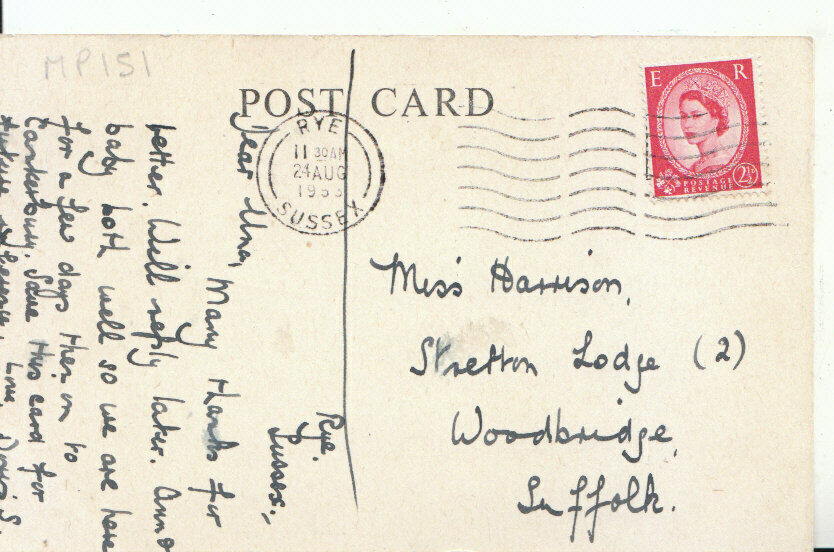 MP151
POST CARD
RYE
11 30AM
24 AUG
1953
SUSSEX
E R
POSTAGE
REVENUE
2½D
Miss Harrison,
Stretton Lodge (2)
Woodbridge,
Suffolk.
Rye.
Sussex.,
Dear Una, Many thanks for
letter. Will reply later. Ann &
baby both well so we are here
for a few days then on to
Canterbury. Save this card for
future reference. Love, Doris.